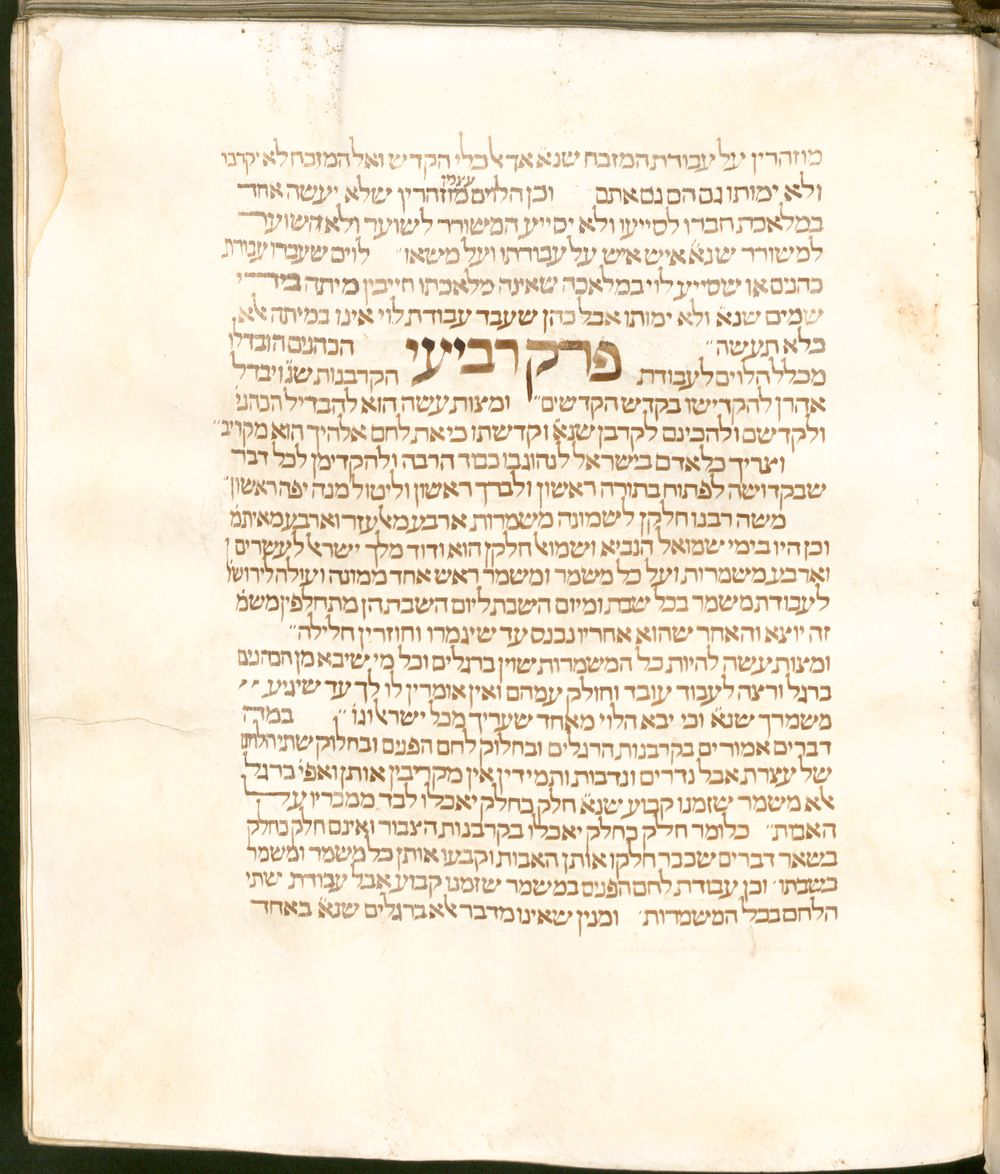 מוזהרין על עבודת המזבח שנא אך אל כלי הקדש ואל המזבח לא יקרבו
ולא ימותו גם הם גם אתם וכן הלוים עצמן מוזהרין שלא יעשה אחד
במלאכת חברו לסייעו ולא יסייע המשורר לשוער ולא השוער
למשורר שנא איש איש על עבודתו ועל משאו״ לוים שעבדו עבודת
כהנים או שסייע לוי במלאכה שאינה מלאכתו חייבין מיתה בידי
שמים שנא ולא ימותו אבל כהן שעבד עבודת לוי אינו במיתה אלא
בלא תעשה״
פרק רביעי
הכהנים הובדלו
מכלל הלוים לעבודת הקרבנות שנ ויבדל
אהרן להקדישו בקדש הקדשים״ ומצות עשה הוא להבדיל הכהני
ולקדשם ולהכינם לקרבן שנא וקדשתו כי את לחם אלהיך הוא מקריב״
וצריך כל אדם בישראל לנהוג בו כבוד הרבה ולהקדימן לכל דבר
שבקדושה לפתוח בתורה ראשון ולברך ראשון וליטול מנה יפה ראשון״
משה רבנו חלקן לשמונה משמרות ארבע מאלעזר וארבע מאיתמ
וכן היו בימי שמואל הנביא ושמואל חלקן הוא ודוד מלך ישראל לעשרים
וארבע משמרות ועל כל משמר ומשמר ראש אחד ממונה ועולה לירושל
לעבודת משמר בכל שבת ומיום השבת ליום השבת הן מתחלפין משמ
זה יוצא והאחר שהוא אחריו נכנס עד שיגמרו וחוזרין חלילה״
ומצות עשה להיות כל המשמרות שוין ברגלים וכל מי שיבא מן הכהנים
ברגל ורצה לעבוד עובד וחולק עמהם ואין אומרין לו לך עד שיגיע
משמרך שנא וכי יבא הלוי מאחד שעריך מכל ישראל וגו ״ במה
דברים אמורים בקרבנות הרגלים ובחלוק לחם הפנים ובחלוק שתי הלחם
של עצרת אבל נדרים ונדבות ותמידין אין מקריבין אותן ואפי ברגל
אלא משמר שזמנו קבוע שנא חלק כחלק יאכלו לבד ממכריו על
האבות״ כלומר חלק כחלק יאכלו בקרבנות הצבור ואינם חלק כחלק
בשאר דברים שכבר חלקו אותן האבות וקבעו אותן כל משמר ומשמר
בשבתו׳ וכן עבודת לחם הפנים במשמר שזמנו קבוע אבל עבודת שתי
הלחם בכל המשמרות׳ ומנין שאינו מדבר אלא ברגלים שנא באחד